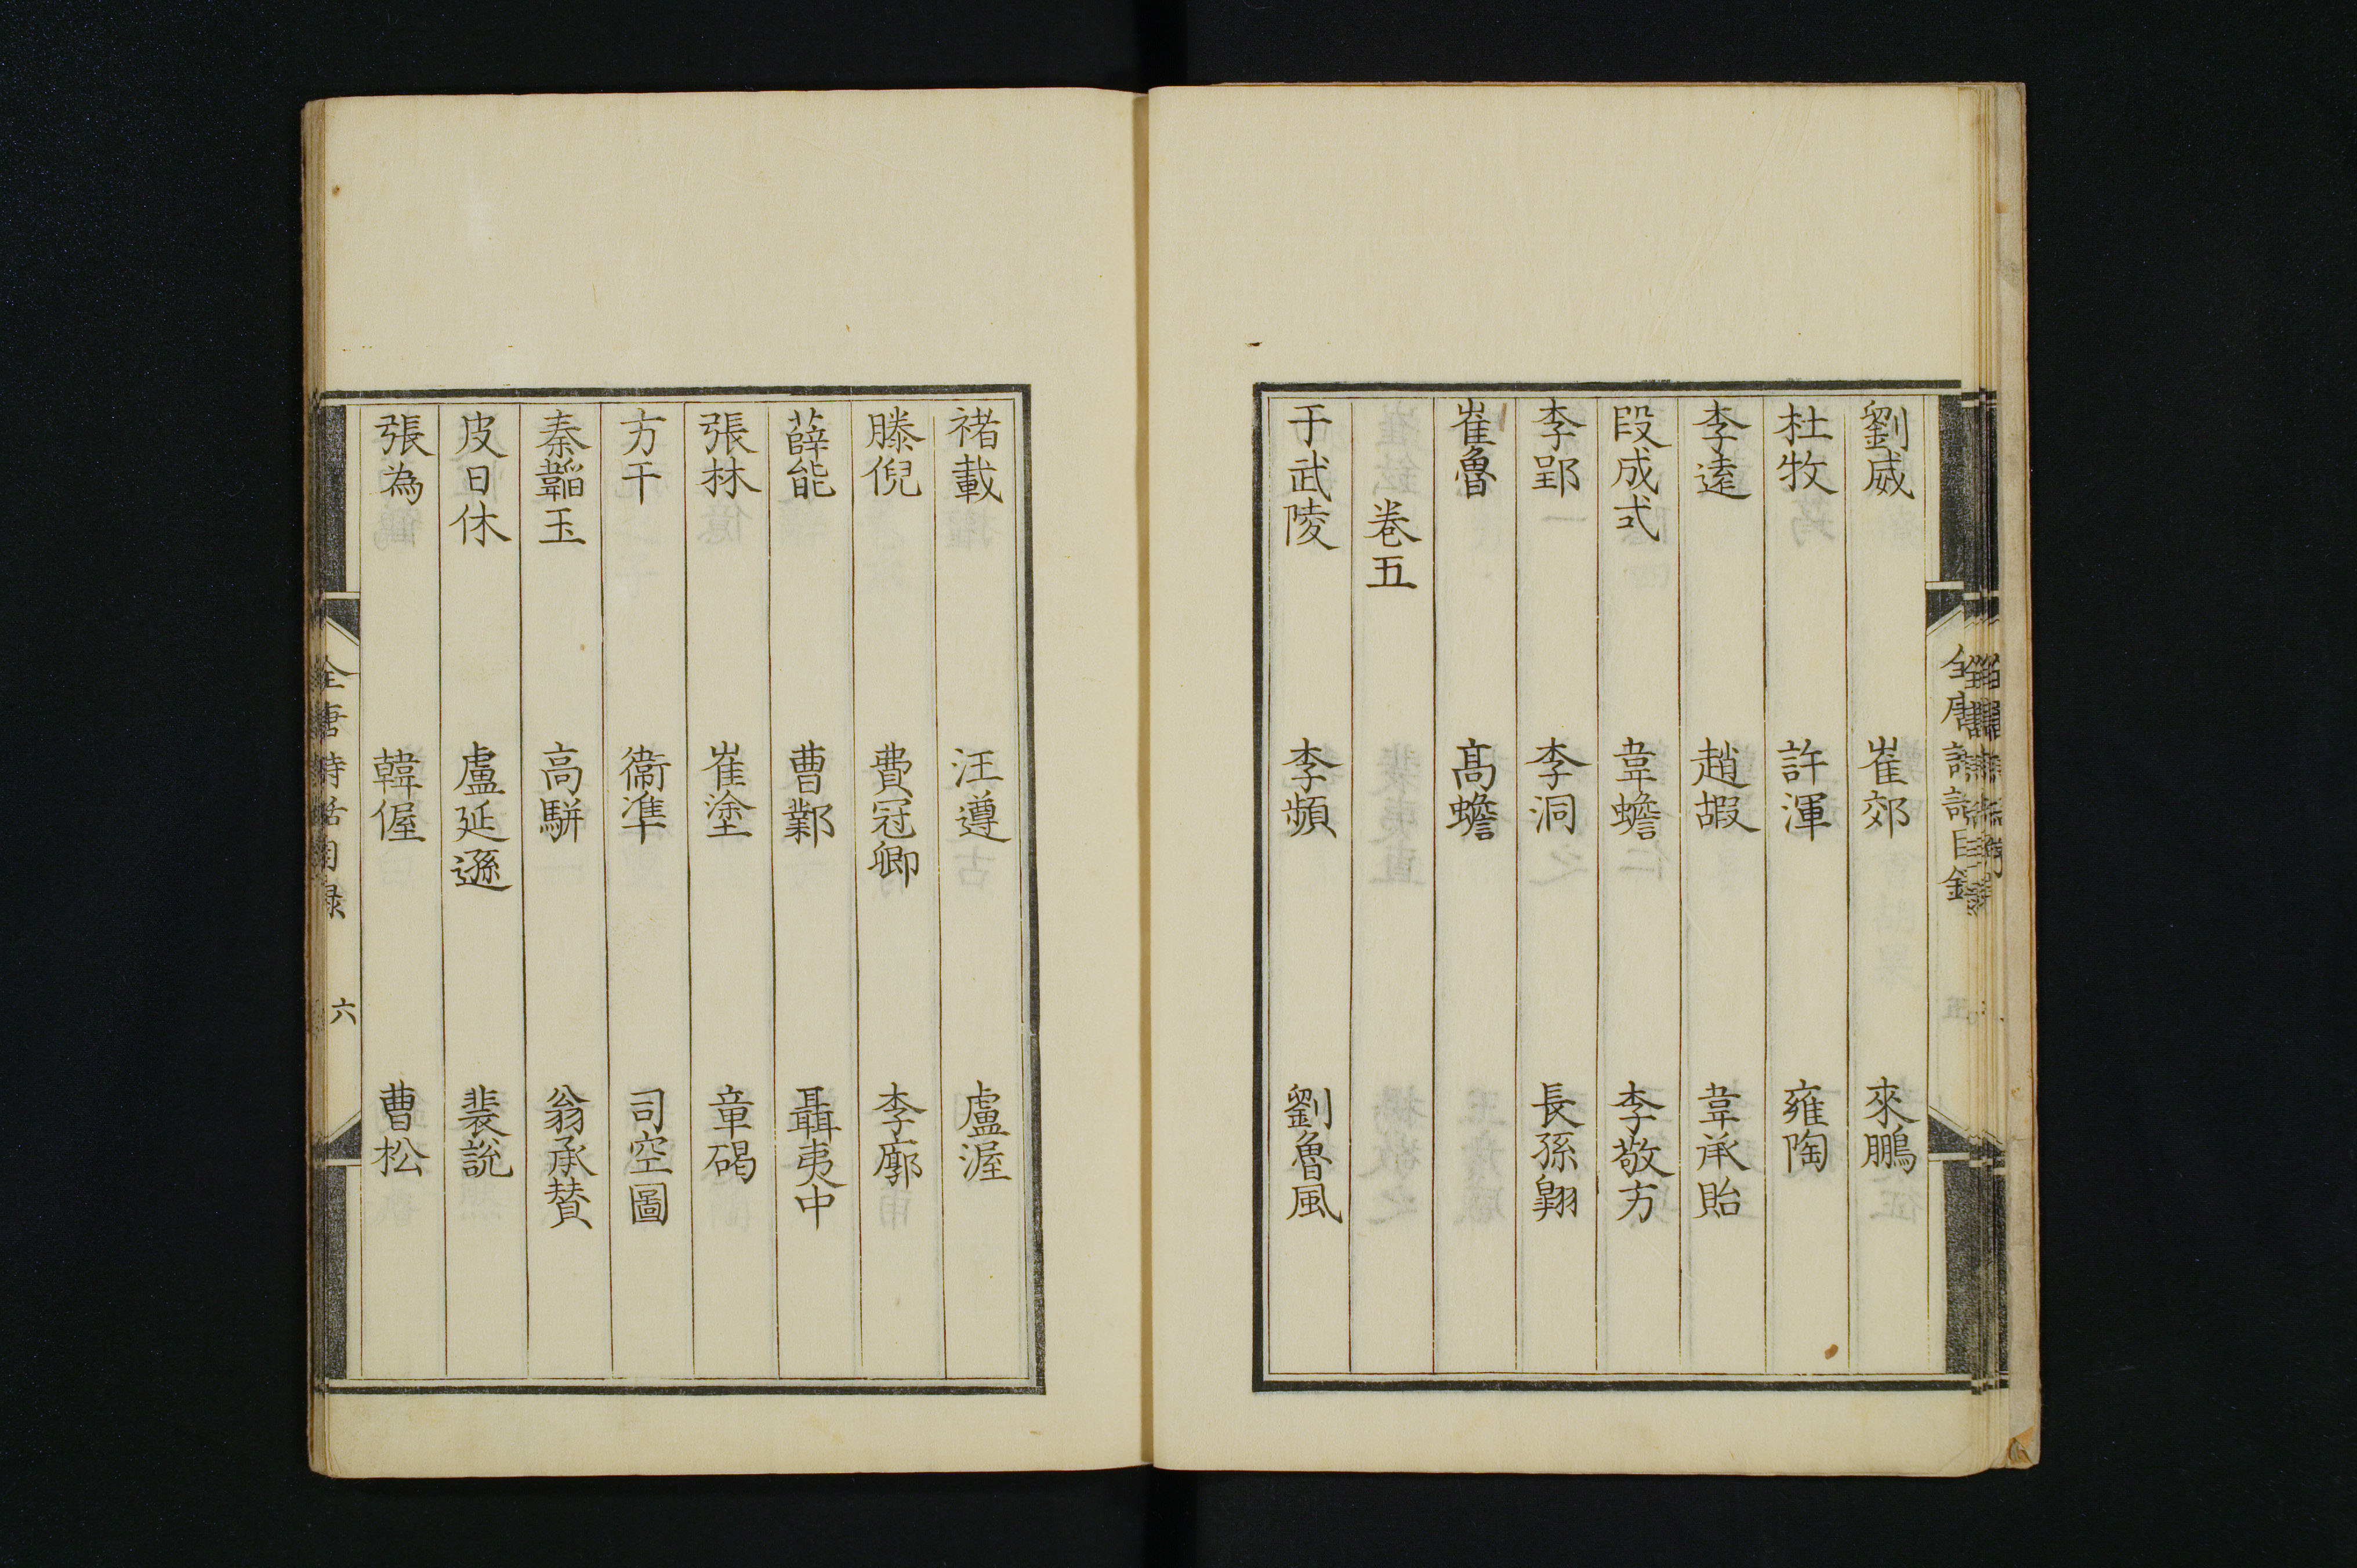 全唐詩話目錄
劉威 崔郊 來鵬
杜牧 許渾 雍陶
李逺 趙嘏 韋承貽
段成式 韋蟾 李敬方
李郢 李洞 長孫翱
崔魯 髙蟾
卷五
于武陵 李頻 劉魯風
褚載 汪遵 盧渥
滕倪 費冠卿 李廓
薛能 曹鄴 聶夷中
張林 崔塗 章碣
方干 衞準 司空圖
秦韜玉 高駢 翁承贊
皮日休 盧延遜 裴說
張為 韓偓 曹松
全唐詩話目錄 六